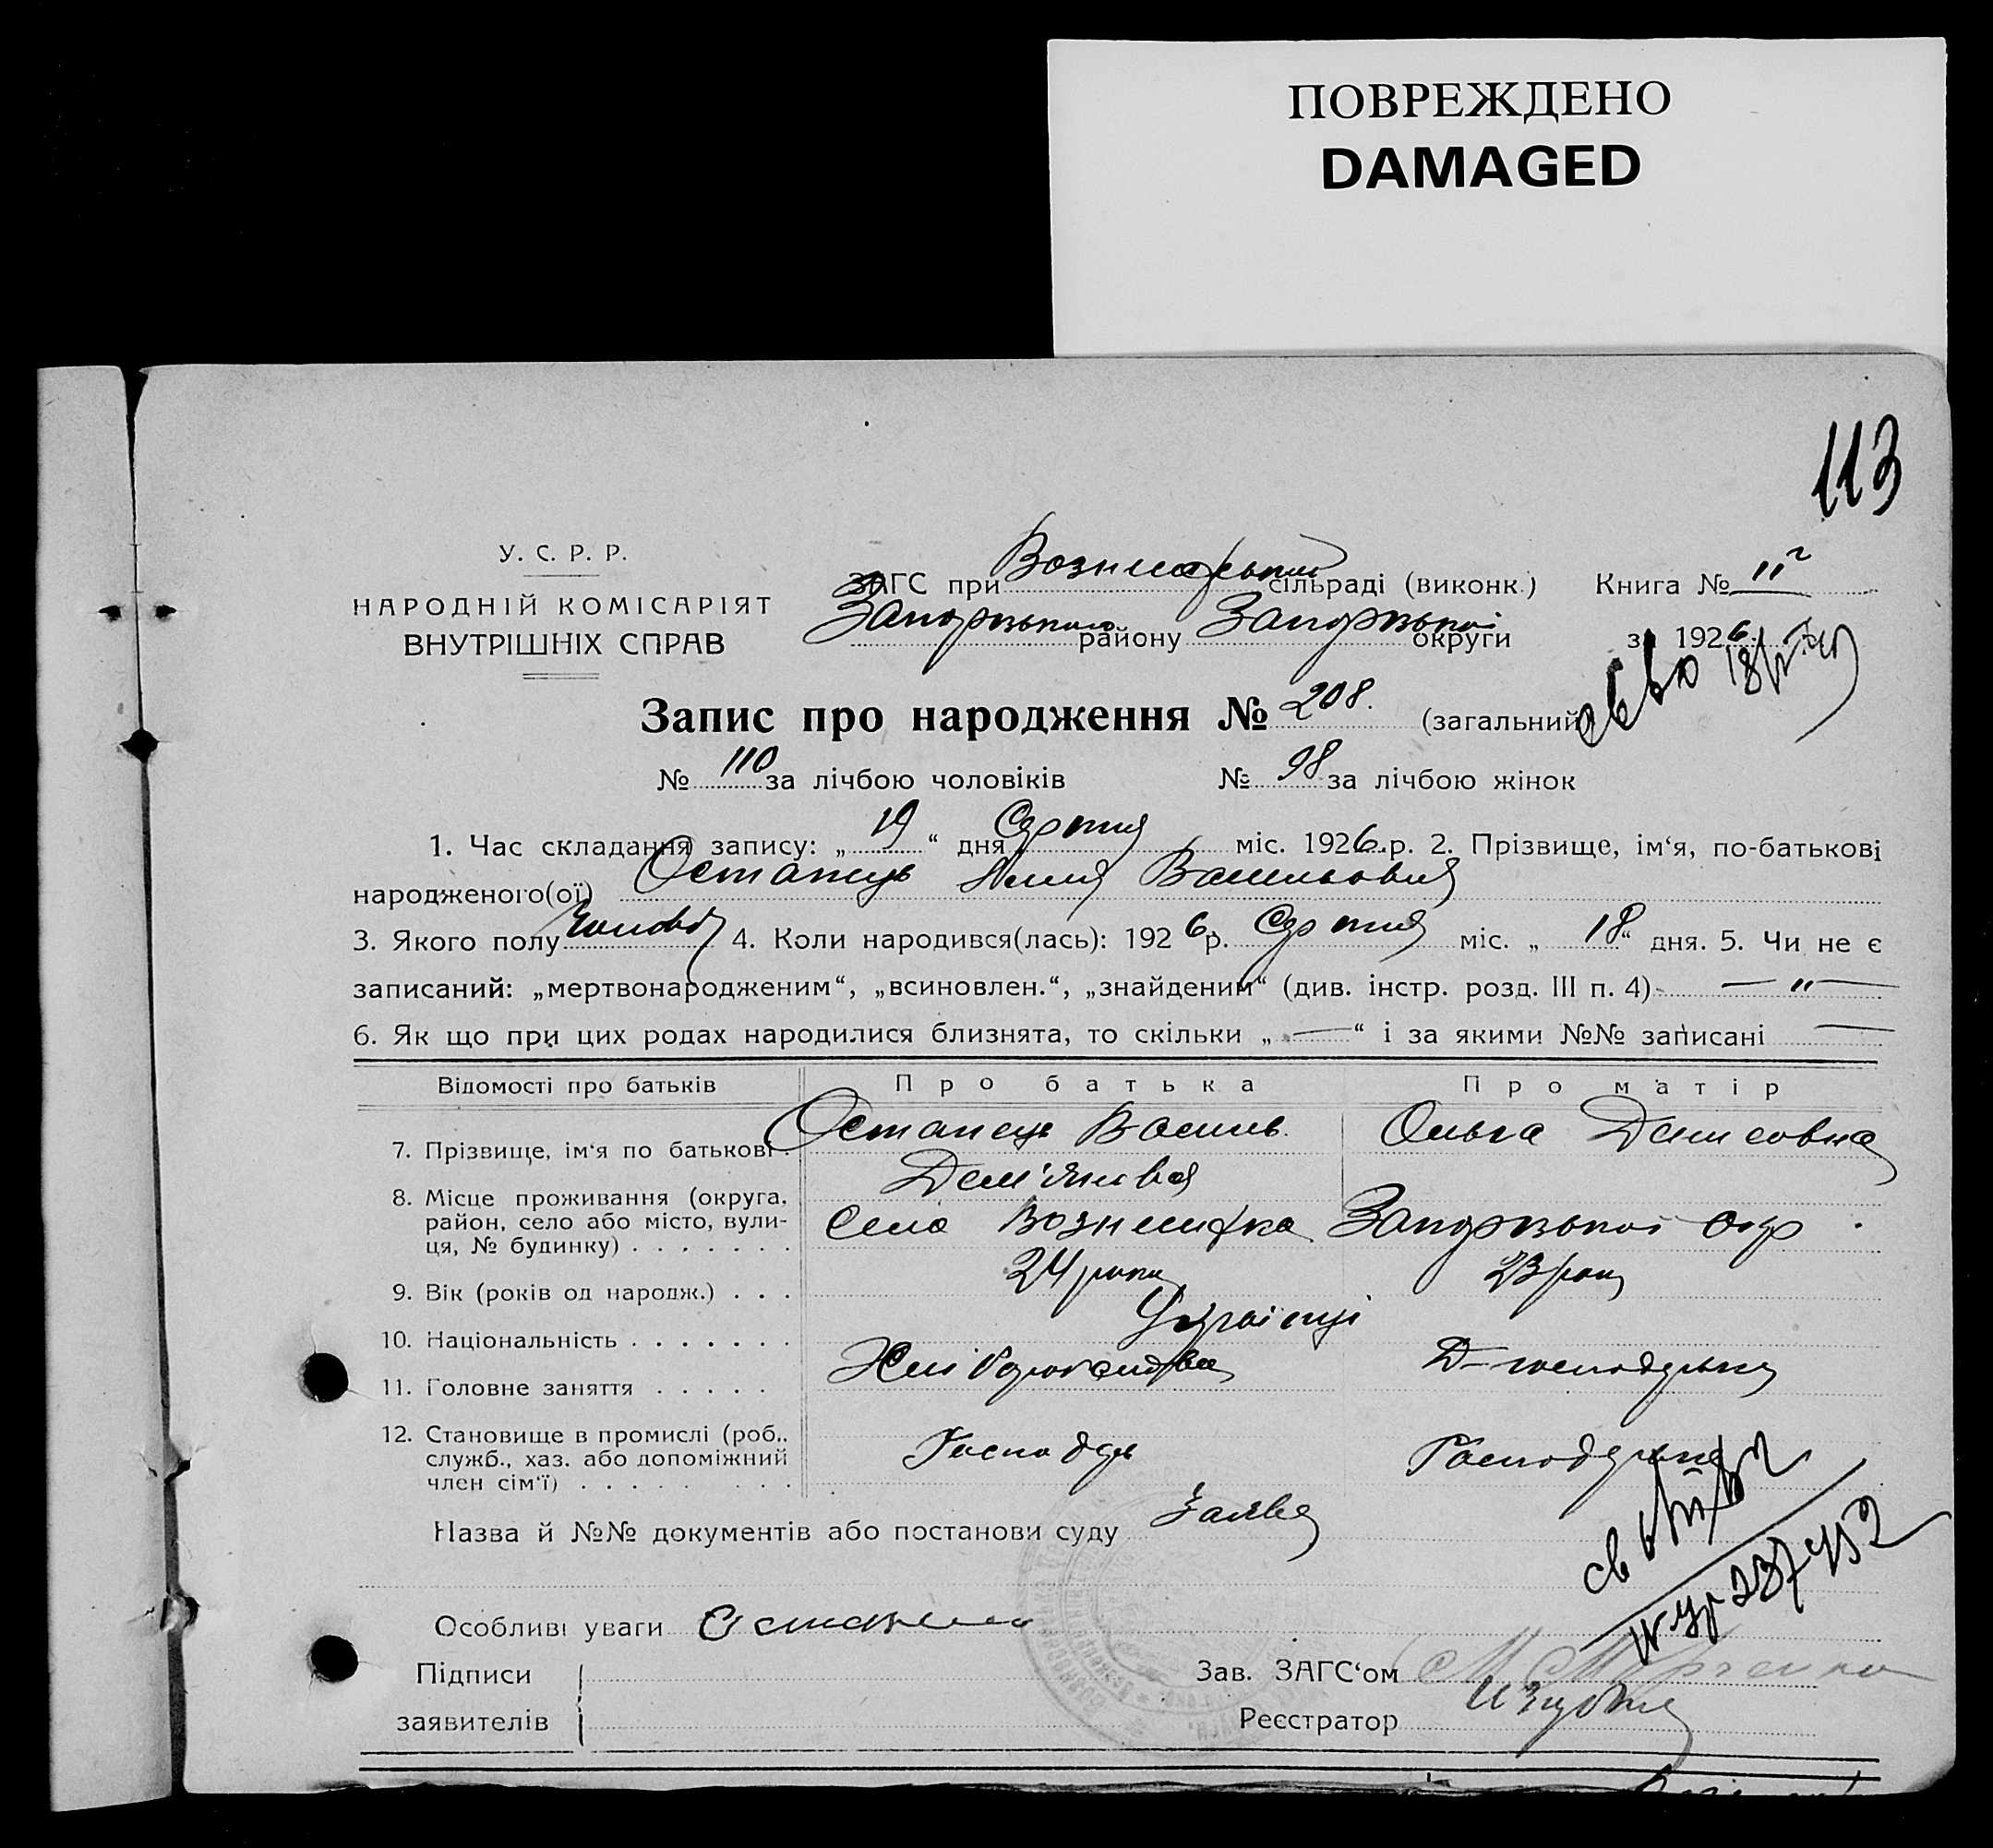 ПОВРЕЖДЕНО
DAMAGED
113
У. С. Р. Р.
НАРОДНІЙ КОМІСАРІЯТ
ВНУТРІШНІХ СПРАВ
ЗАГС при сільраді (виконк.) Книга № II
району округи за 1926
Запис про народження № 208. (загальний)
№ 110 за лічбою чоловіків № 98 за лічбою жінок
1. Час складання запису: „ 19 “ дня Серпня міс. 1926 р. 2. Прізвище, ім‘я, по-батькові
народженого(ої) Остапець
3. Якого полу 4. Коли народився(лась): 1926 р. Серпня міс. „ 18 “ дня. 5. Чи не є
записаний: „мертвонародженим“, „всиновлен.“, „знайденим“ (див. інстр. розд. III п. 4) — " —
6. Як що при цих родах народилися близнята, то скільки „ — “ і за якими №№ записані —
Відомості про батьків Про батька Про матір
7. Прізвище, ім‘я по батькові . Остапець Василь Ольга Денисовна
Дем'янівич
8. Місце проживання (округа, район, село або місто, вулиця, № будинку) . . . . . . . Село Запорізької окр.
9. Вік (років од народж.) . . . 24 роки 23 роки
10. Національність . . . . . . . Українці
11. Головне заняття . . . . . Хліборобство Д-господарка
12. Становище в промислі (роб., служб., хаз. або допоміжний член сім‘ї) . . . . . . . Господар Господарка
Назва й №№ документів або постанови суду Заява
Особливі уваги
Підписи
заявителів
Зав. ЗАГС‘ом
Реєстратор